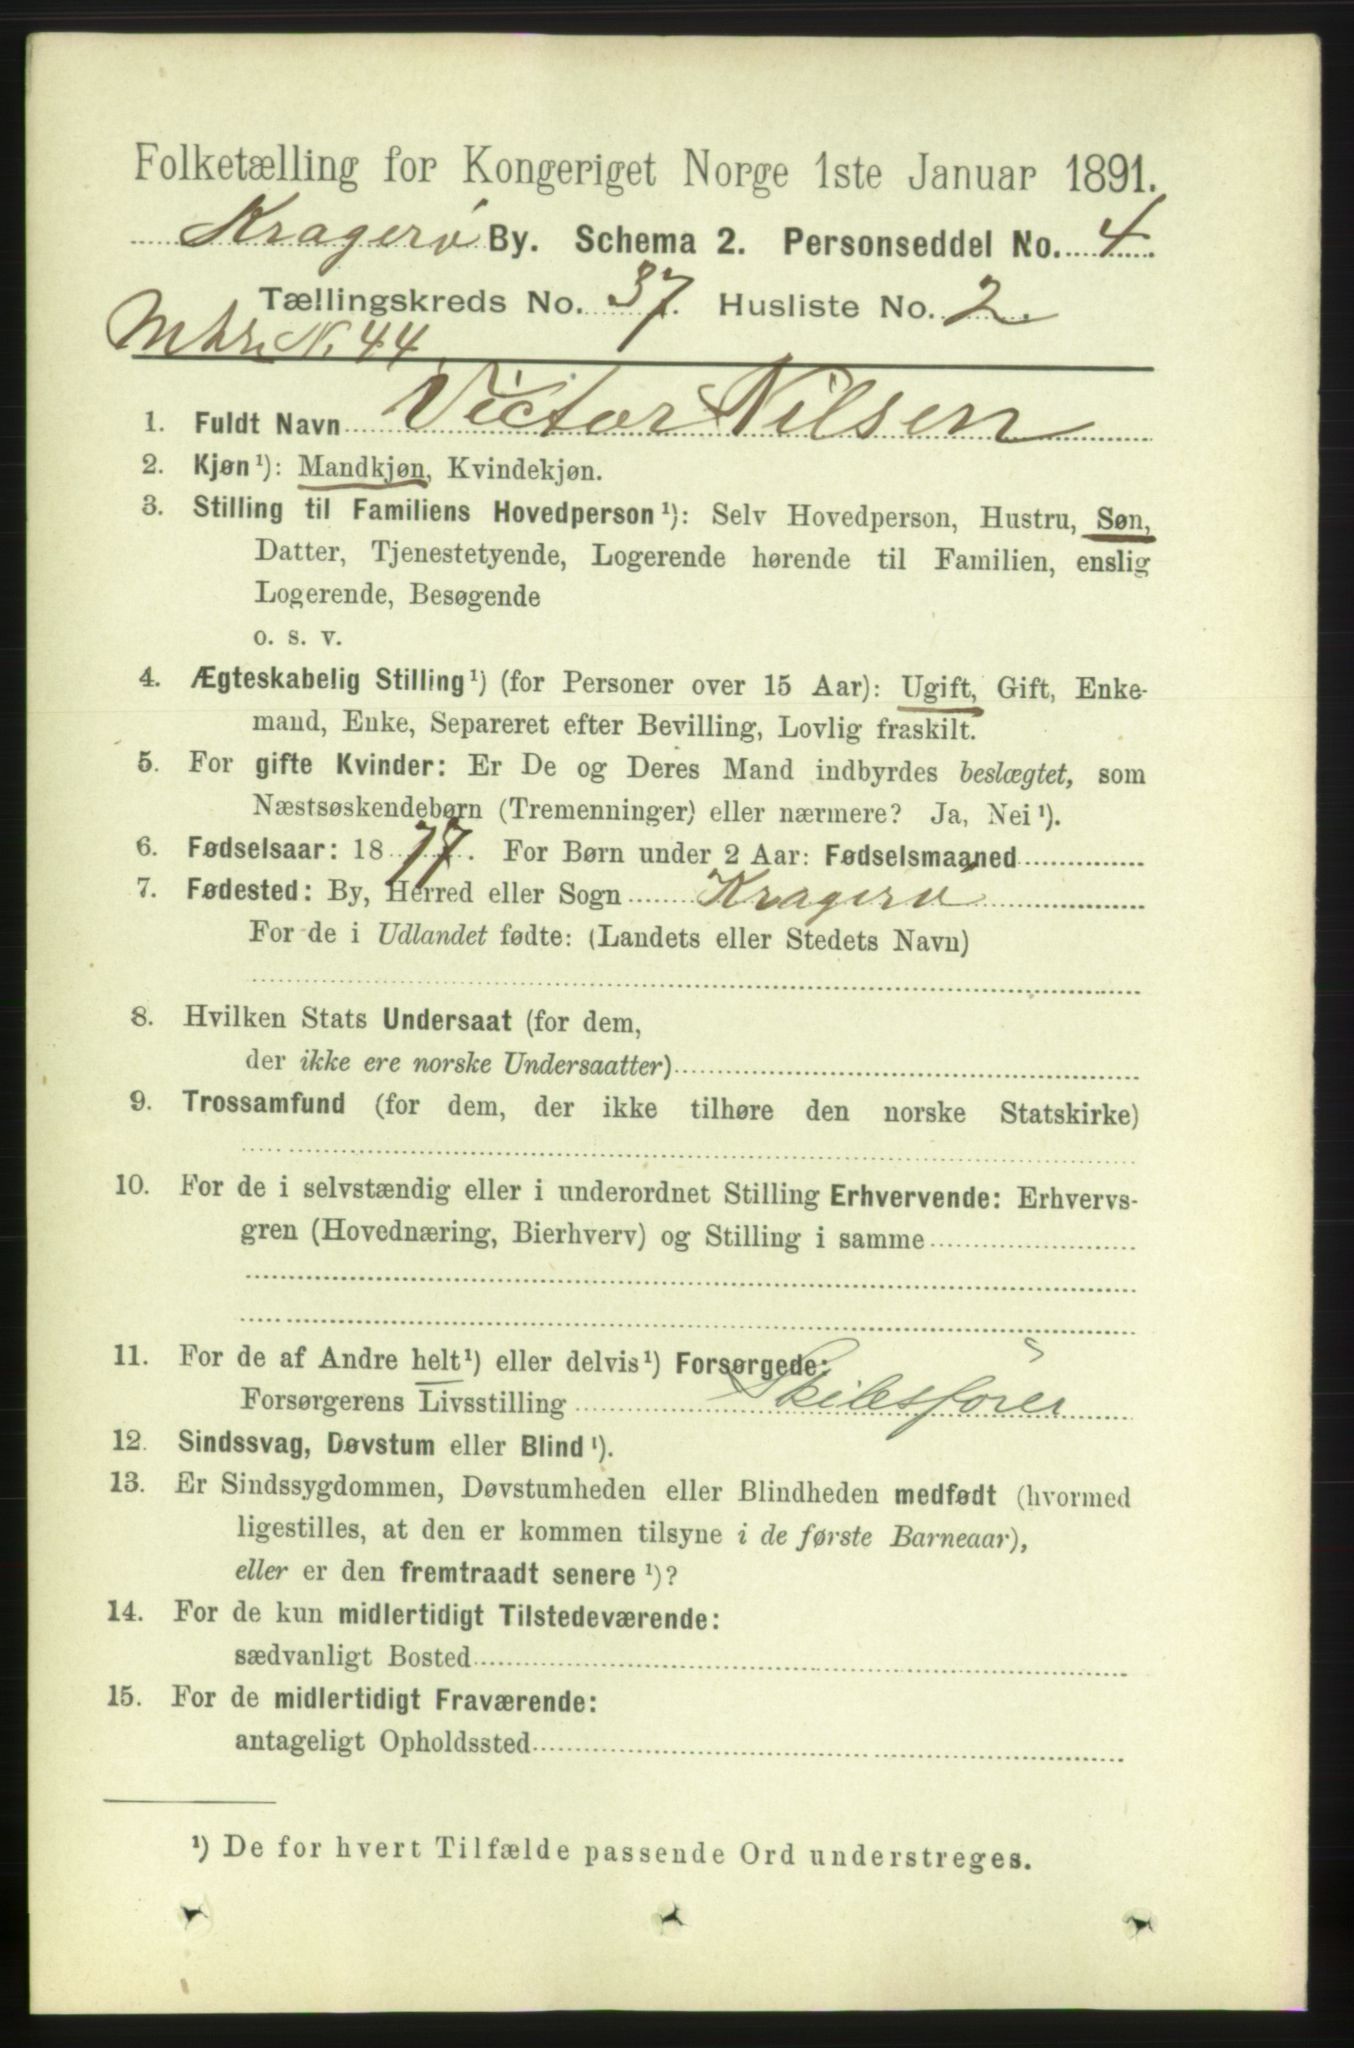 Folketælling for Kongeriget Norge 1ste Januar 1891.
Kragerø By. Schema 2. Personseddel No. 4.
Tællingskreds No. 37. Husliste No. 2.
Mtr. N. 44
1. Fuldt Navn Victor Nilsen
2. Kjøn¹): Mandkjøn, Kvindekjøn.
3. Stilling til Familiens Hovedperson¹): Selv Hovedperson, Hustru, Søn,
Datter, Tjenestetyende, Logerende hørende til Familien, enslig
Logerende, Besøgende
o. s. v.
4. Ægteskabelig Stilling¹) (for Personer over 15 Aar): Ugift, Gift, Enke-
mand, Enke, Separeret efter Bevilling, Lovlig fraskilt.
5. For gifte Kvinder: Er De og Deres Mand indbyrdes beslægtet, som
Næstsøskendebørn (Tremenninger) eller nærmere? Ja, Nei¹).
6. Fødselsaar: 1877. For Børn under 2 Aar: Fødselsmaaned
7. Fødested: By, Herred eller Sogn Kragerø
For de i Udlandet fødte: (Landets eller Stedets Navn)
8. Hvilken Stats Undersaat (for dem,
der ikke ere norske Undersaatter)
9. Trossamfund (for dem, der ikke tilhøre den norske Statskirke)
10. For de i selvstændig eller i underordnet Stilling Erhvervende: Erhvervs-
gren (Hovednæring, Bierhverv) og Stilling i samme
11. For de af Andre helt¹) eller delvis¹) Forsørgede:
Forsørgerens Livsstilling Skibsfører
12. Sindssvag, Døvstum eller Blind¹).
13. Er Sindssygdommen, Døvstumheden eller Blindheden medfødt (hvormed
ligestilles, at den er kommen tilsyne i de første Barneaar),
eller er den fremtraadt senere¹)?
14. For de kun midlertidigt Tilstedeværende:
sædvanligt Bosted
15. For de midlertidigt Fraværende:
antageligt Opholdssted
¹) De for hvert Tilfælde passende Ord understreges.